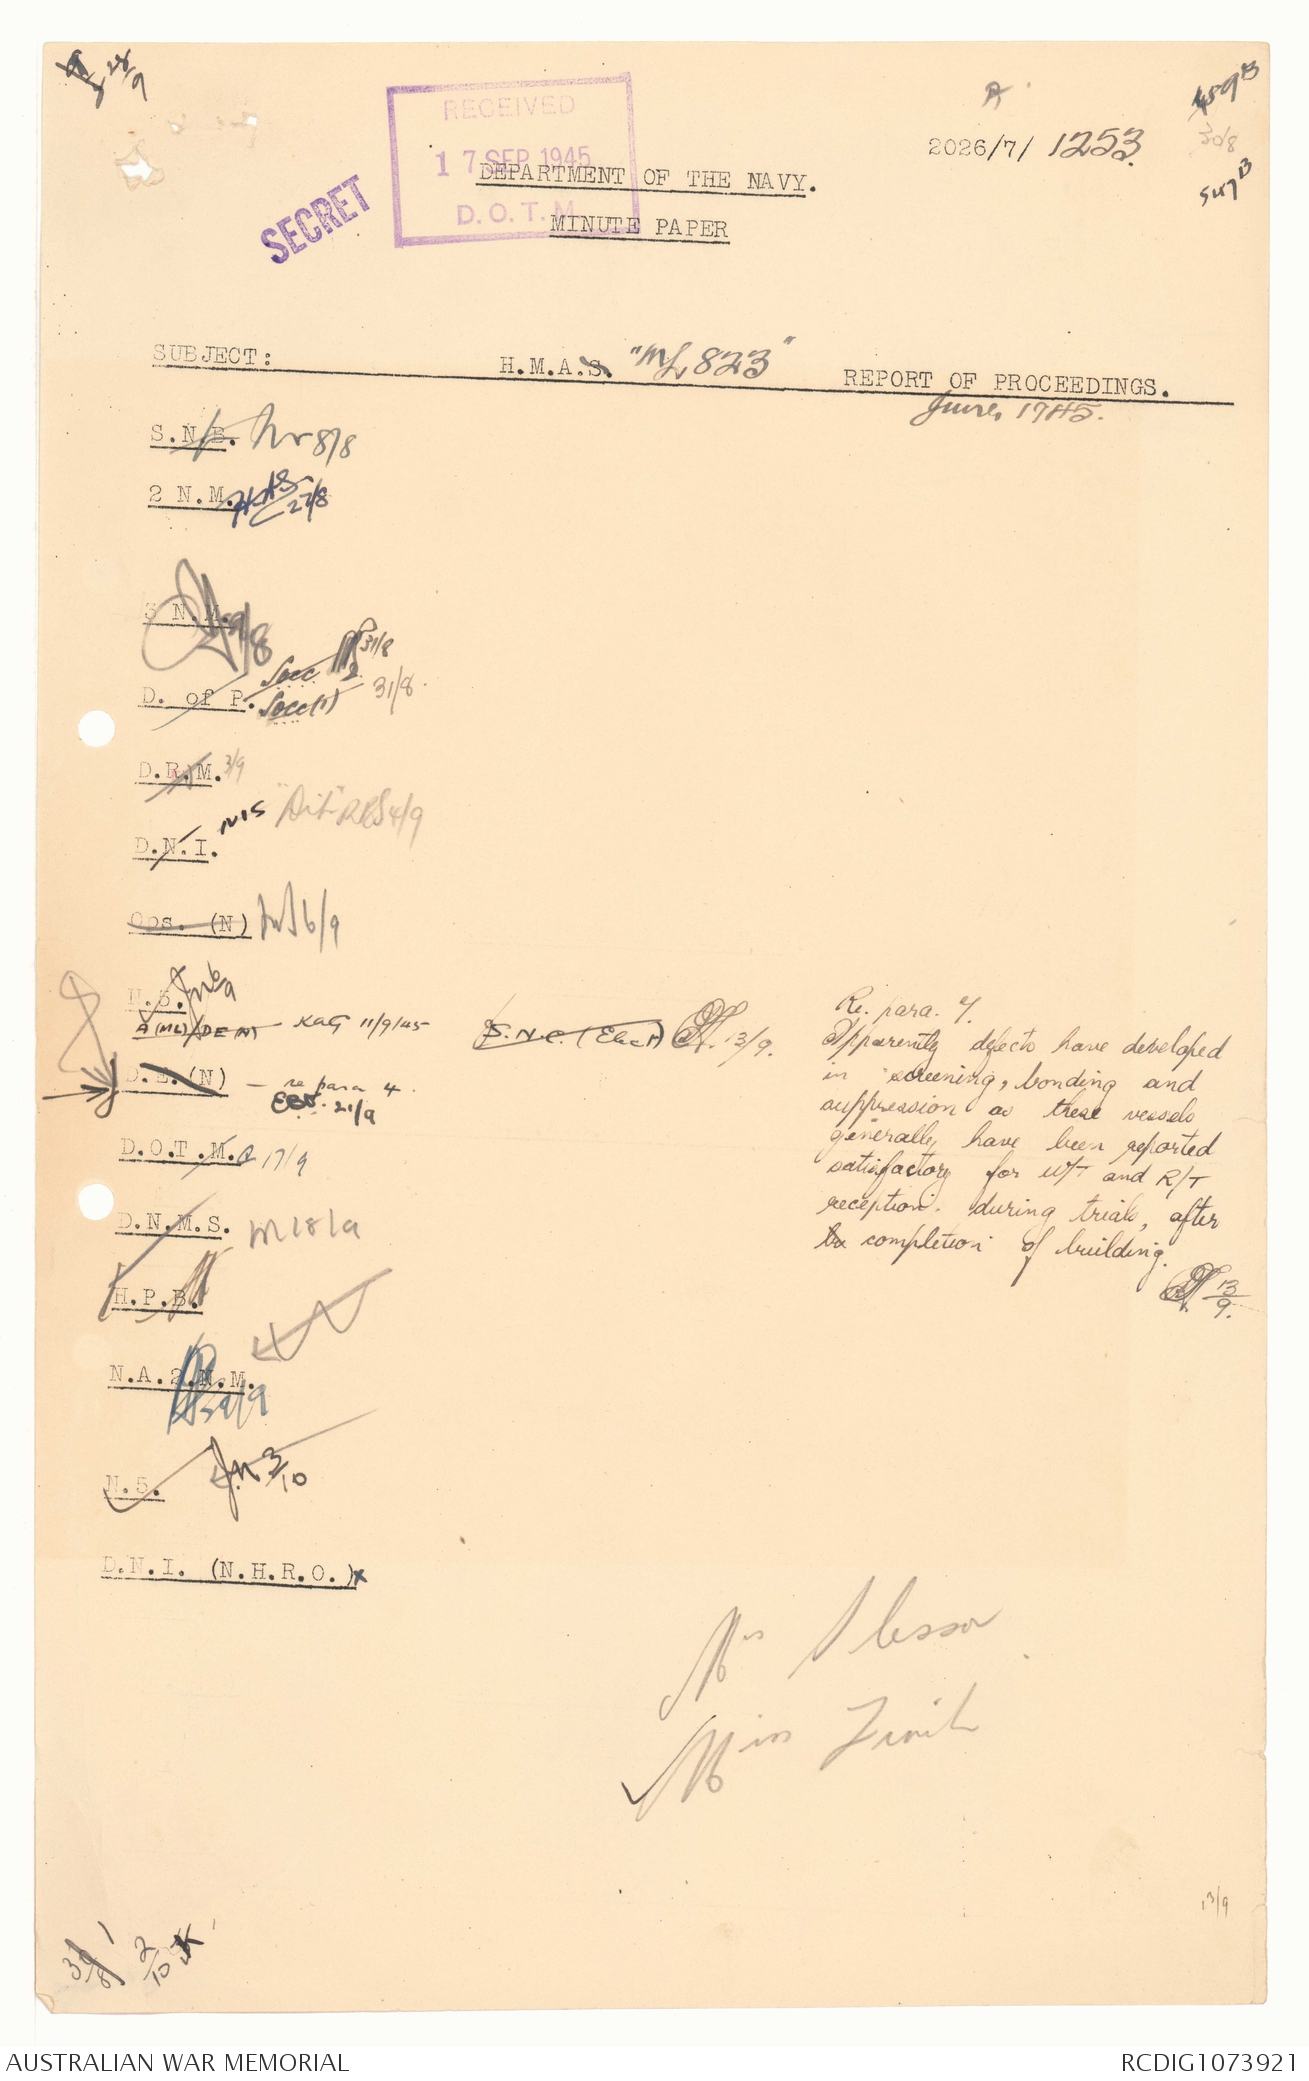 28/9
A
489B
30/8
547B
2026/7/ 1253
RECEIVED
17 SEP 1945
D.O.T.M
SECRET
DEPARTMENT OF THE NAVY.
MINUTE PAPER
SUBJECT: H.M.A.S. "ML 823" REPORT OF PROCEEDINGS.
June, 1945.
S.N.B. 8/8
2 N.M. 27/8
3 N.M. 9/8
D. of P. Socc 2 31/8
Socc(1) 31/8.
D.R.M. 3/9
D.N.I. NIS RBS 4/9
Ops. (N) 6/9
N.5.
A (ML)/DE(N) - KaG 11/9/45
S.N.C. (Elect) 13/9.
D.E.(N) - re para 4.
21/9
D.O.T.M. 17/9
D.N.M.S. 18/9
H.P.B.
N.A.2.N.M.
N.5. 3/10
D.N.I. (N.H.R.O.)x
Re. para. 7.
Apparently defects have developed
in screening, bonding and
suppression as these vessels
generally have been reported
satisfactory for W/T and R/T
reception during trials, after
completion of building.
13/9.
Mr Slessor
Miss
13/9
2/10
AUSTRALIAN WAR MEMORIAL
RCDIG1073921